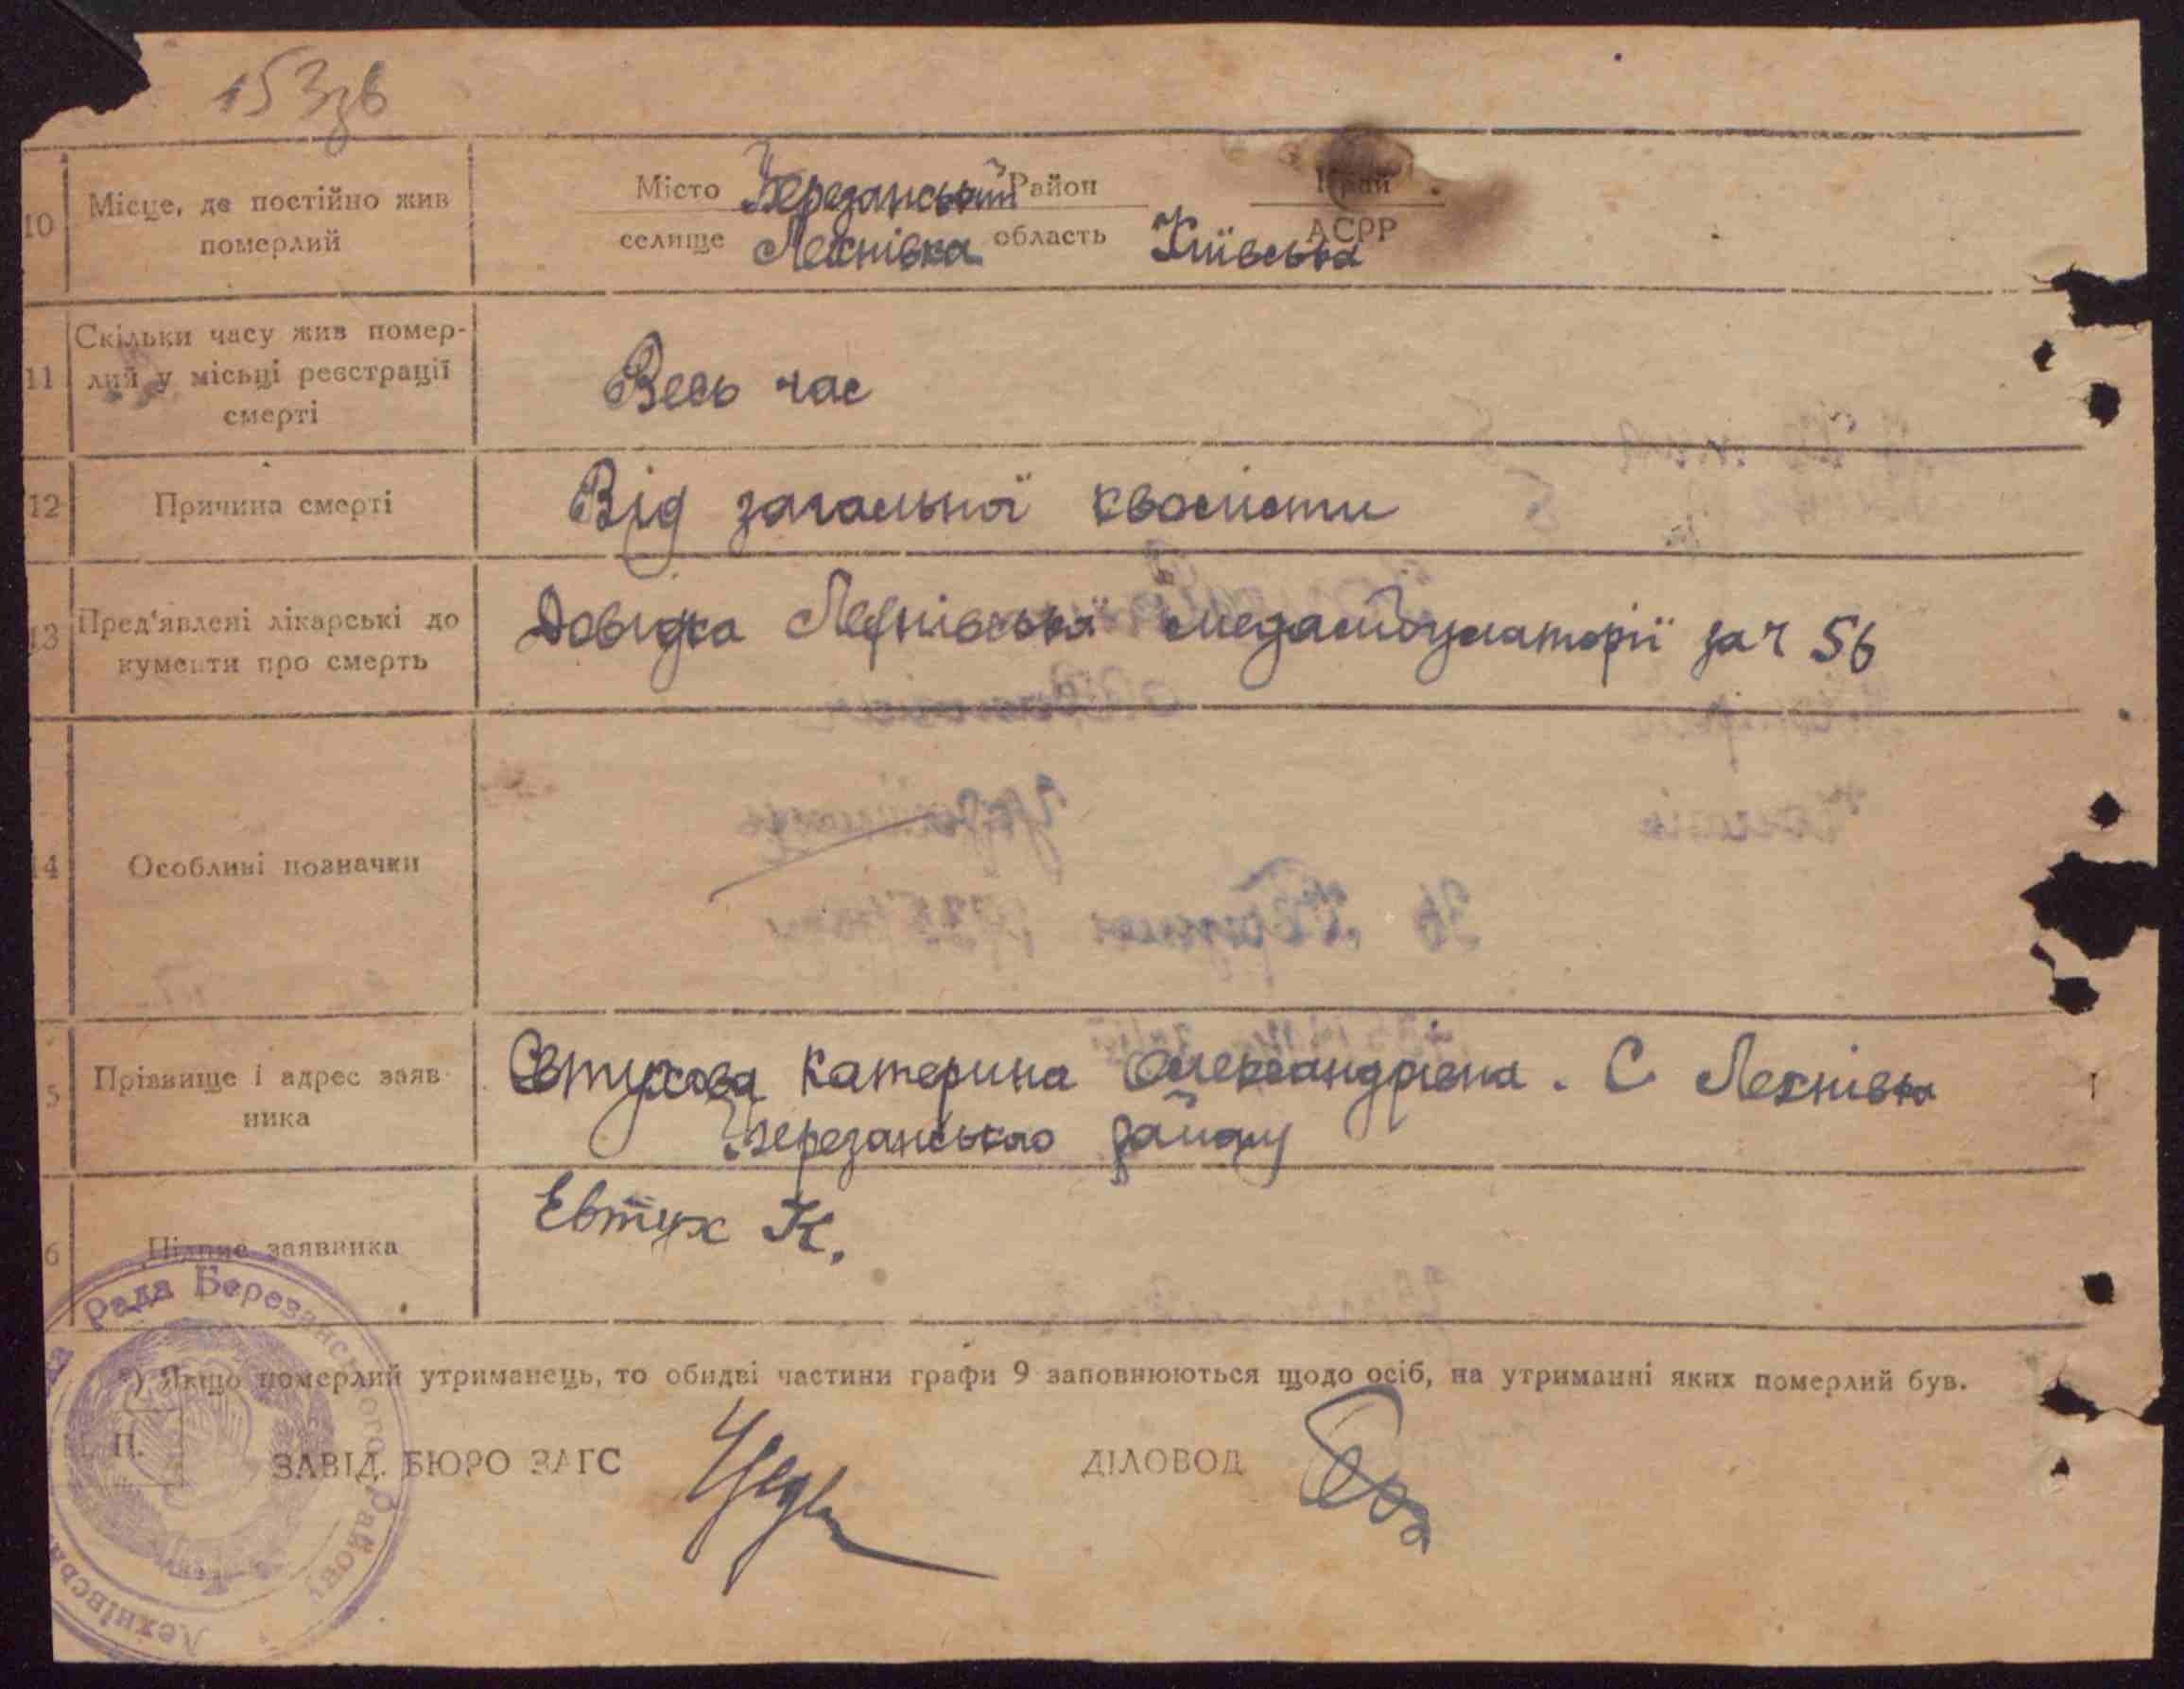 153зв
10 Місце, де постійно жив Місто Березанський Район Край
померлий селище Лехнівка область Київська АСРР
Скільки часу жив помер-
11 лий у місьці реєстрації Весь час
смерті
12 Причина смерті Від загальної кволисти
Пред'явлені лікарські до Довідка Лехнівської медамбулаторії за ч 56
13 кументи про смерть
14 Особливі позначки
Прізвище і адрес заяв- Євтухова Катерина Олександрівна. С Лехнівка
5 ника Березанського району
6 Підпис заявника Евтух К.
Рада Березанського Району
Лехнівська
*) Якщо померлий утриманець, то обидві частини графи 9 заповнюються щодо осіб, на утриманні яких померлий був.
П.
ЗАВІД. БЮРО ЗАГС ДІЛОВОД